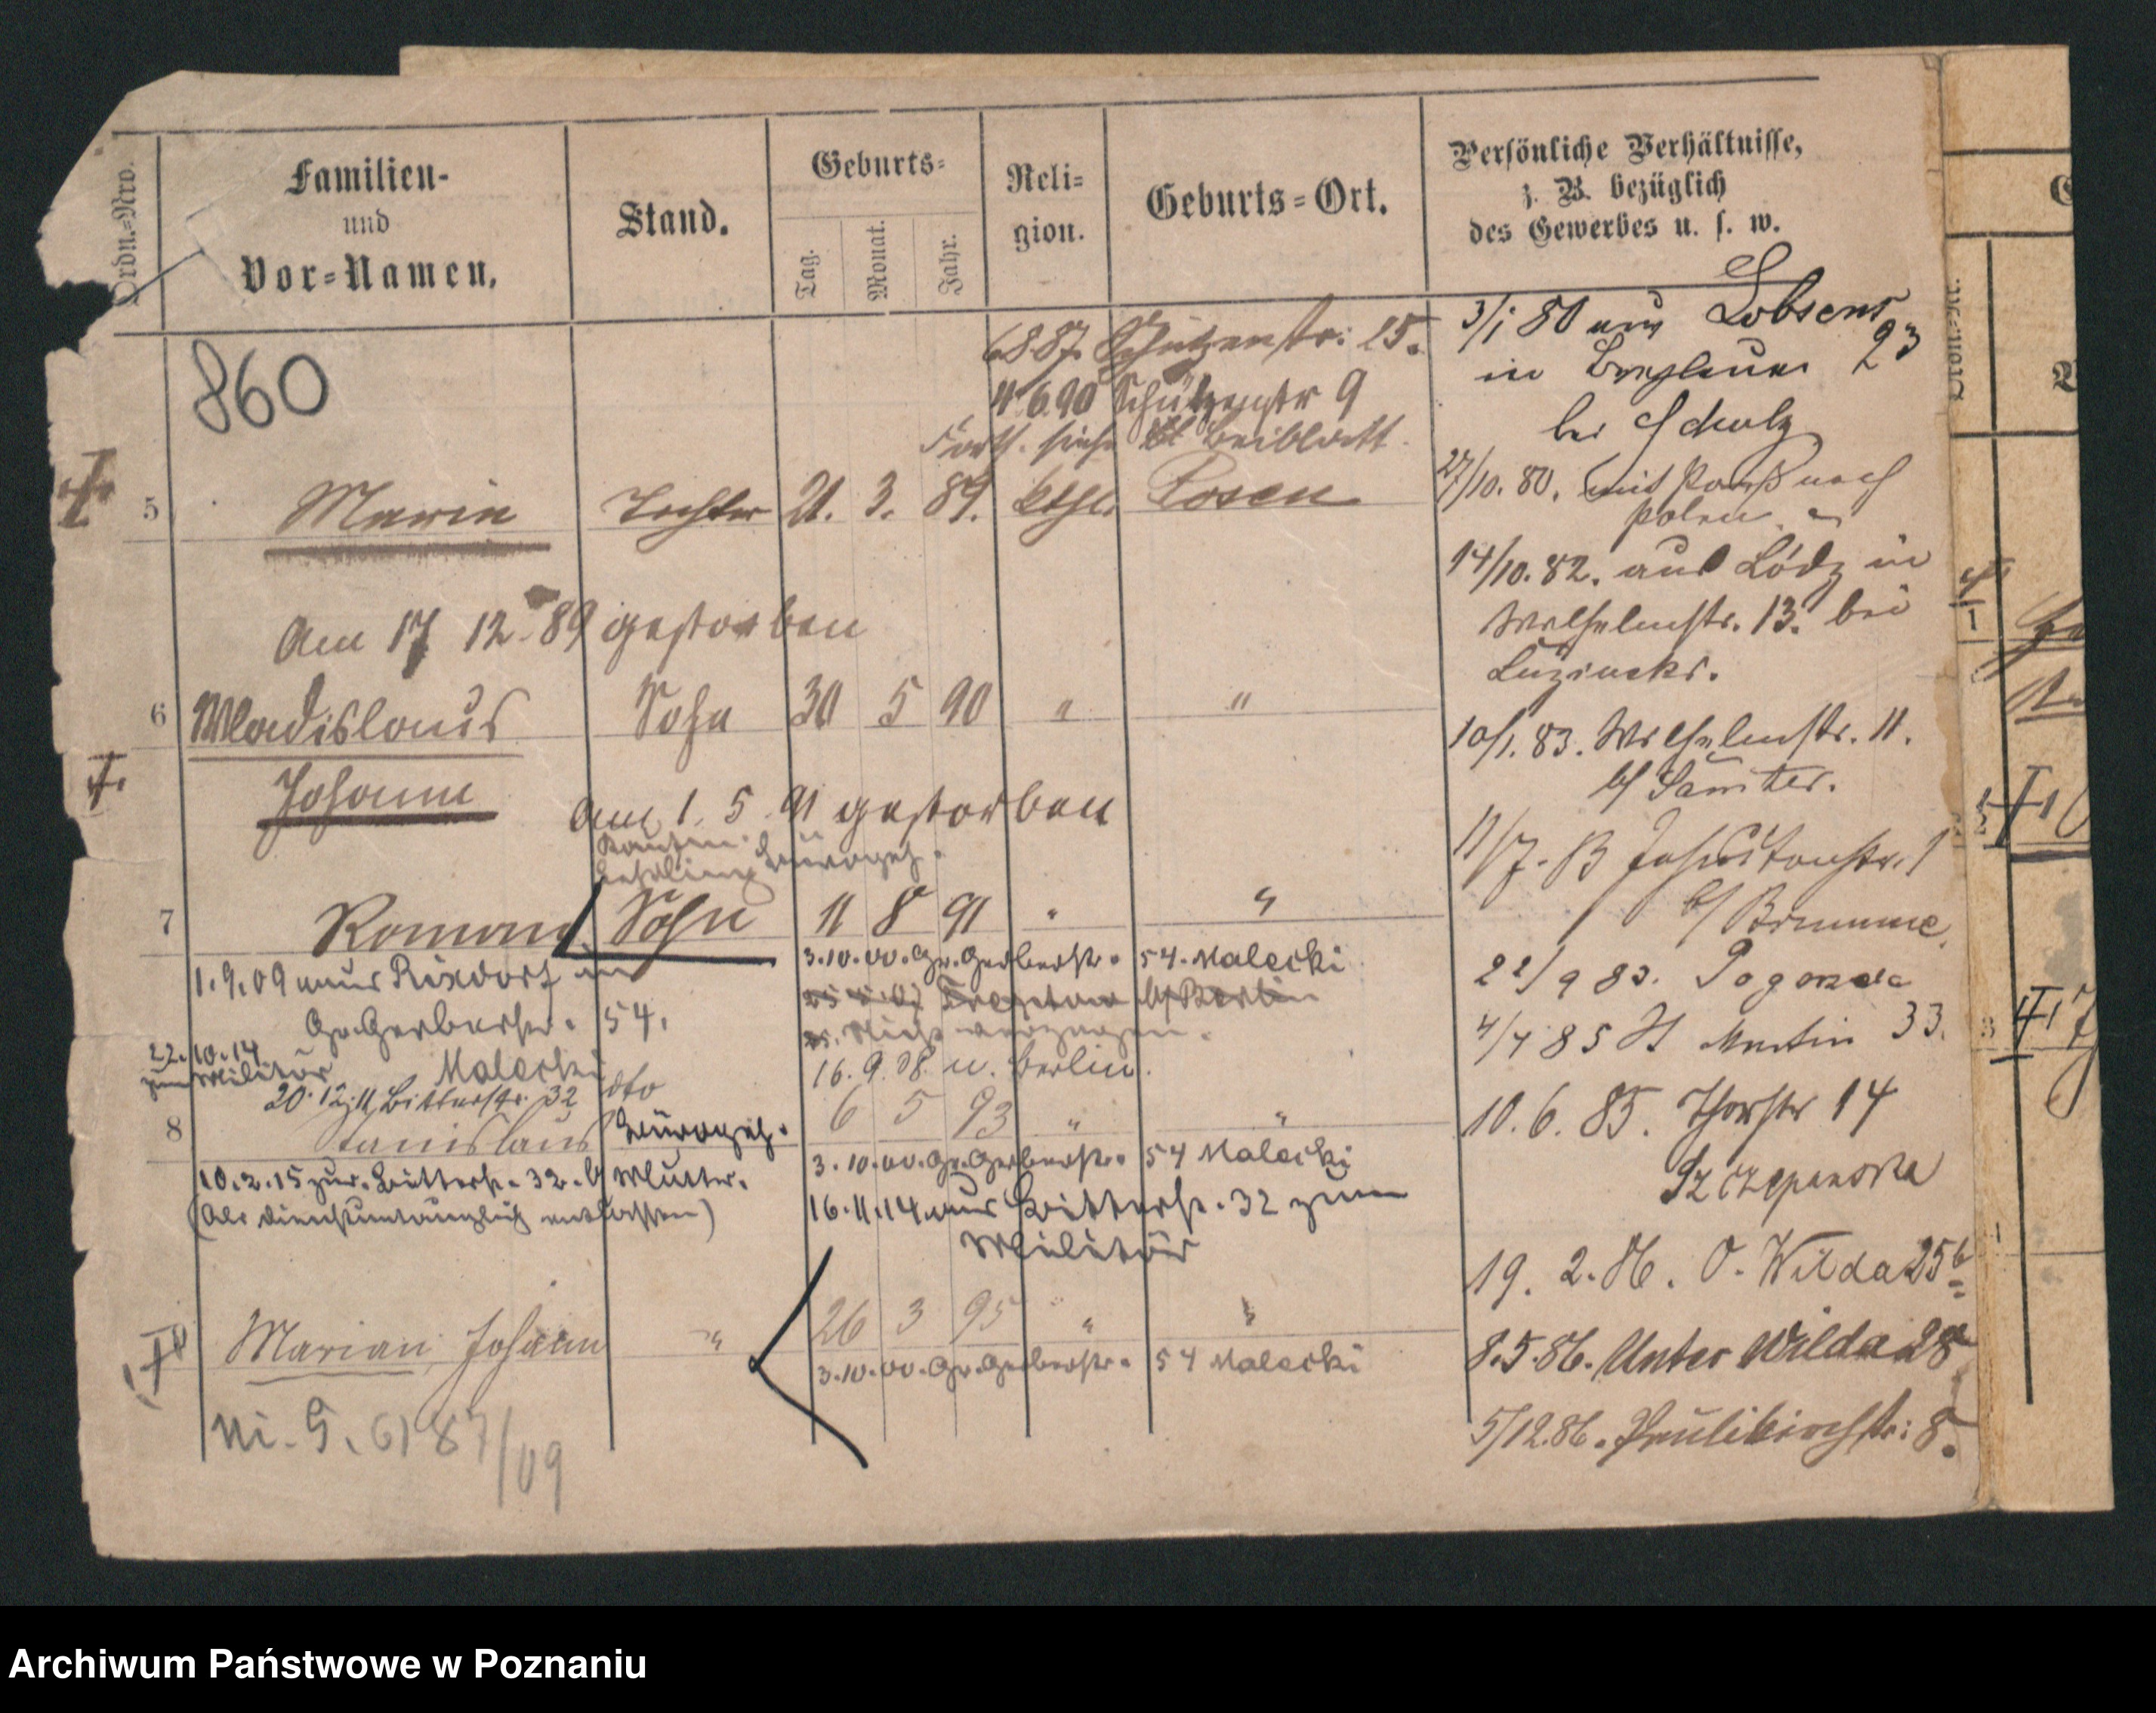 Ordn.=Nro.
Familien-
und
Vor=Namen.
Stand.
Geburts=
Tag.
Monat.
Jahr.
Reli=
gion.
Geburts=Ort.
Persönliche Verhältnisse,
z. B. bezüglich
des Gewerbes u. s. w.
860
6.8.87. Schützenstr: 25.
11.6.90 Schützenstr 9
Forts. siehe Beiblatt.
5 Maria Tochter 21. 3. 89. kthl. Posen
Am 17 12. 89 gestorben
6 Wladislaus Sohn 30 5 90 " "
Johann
am 1. 5. 91 gestorben
Lehrling
7 Roman Sohn 11 8 91 " "
3.10.00. Gr. Gerberstr. 54. Malecki
1.9.09 aus Rixdorf in
Gr. Gerberstr. 54.
Malecki
16.9.08. n. Berlin.
22.10.14
zum Militär
20.12.11 Bitterstr. 32
8 Stanislaus dto 6 5 93 " "
Bürogeh.
3.10.00. Gr. Gerberstr. 54 Malecki
10.2.15 zur. Bitterstr. 32. b Mutter.
(Als dienstuntauglich entlassen)
16.11.14 aus Bitterstr. 32 zum
Militär
Marian, Johann " 26 3 95 " "
3.10.00. Gr. Gerberstr. 54 Malecki
87/09
3/1 80 aus Lobsens
in Breslauer 23
bei Scholz
27/10. 80. mit Paß nach
Polen
14/10. 82. aus Lódz in
Wilhelmstr. 13. bei
10/1. 83. Wilhelmstr. 11.
b/ Samter.
11/7. 83 Jesuitenstr. 1
b/ Brumme.
22/9 83.
4/4 85 St Martin 33.
10. 6. 85. Thorstr 14
Szczepanska
19. 2. 86. O. Wilda 25b
8.5.86. Unter Wilda 28
5/12.86. Paulikirchstr: 8.
Archiwum Państwowe w Poznaniu